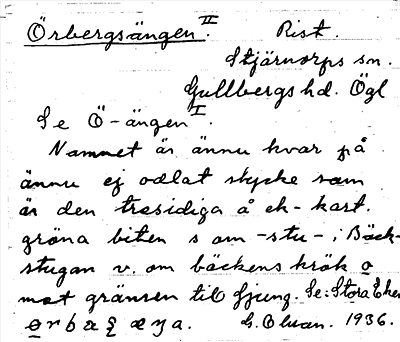 Örbergsängen II. Rist.
Stjärnorps sn.
Gullbergs hd. Ögl
Se Ö-ängen I.
Namnet är ännu kvar på
ännu ej odlat stycke som
är den tresidiga å ek-kart.
gröna biten s om -stu- i Bäck-
stugan v. om bäckens krök o
mot gränsen till Ljung. Se: Stora Eken
G. Olsson. 1936.